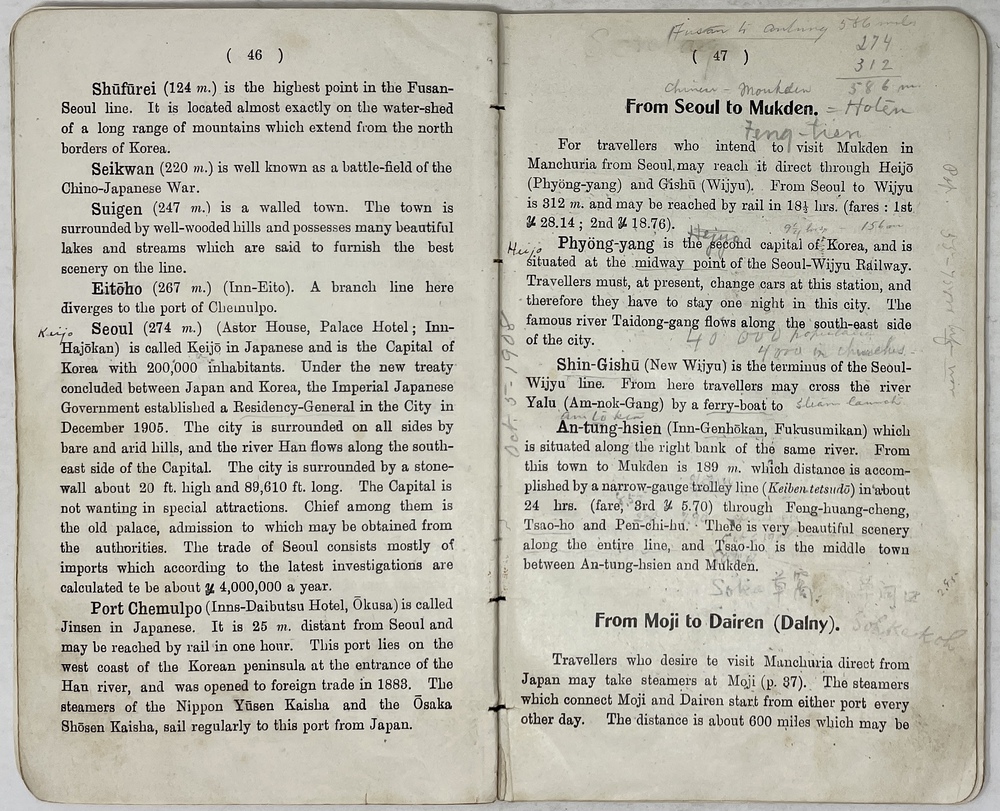 ( 46 )
Shūfūrei (124 m.) is the highest point in the Fusan-
Seoul line. It is located almost exactly on the water-shed
of a long range of mountains which extend from the north
borders of Korea.
Seikwan (220 m.) is well known as a battle-field of the
Chino-Japanese War.
Suigen (247 m.) is a walled town. The town is
surrounded by well-wooded hills and possesses many beautiful
lakes and streams which are said to furnish the best
scenery on the line.
Eitōho (267 m.) (Inn-Eito). A branch line here
diverges to the port of Chemulpo.
Keijo
Seoul (274 m.) (Astor House, Palace Hotel; Inn-
Hajōkan) is called Keijō in Japanese and is the Capital of
Korea with 200,000 inhabitants. Under the new treaty
concluded between Japan and Korea, the Imperial Japanese
Government established a Residency-General in the City in
December 1905. The city is surrounded on all sides by
bare and arid hills, and the river Han flows along the south-
east side of the Capital. The city is surrounded by a stone-
wall about 20 ft. high and 89,610 ft. long. The Capital is
not wanting in special attractions. Chief among them is
the old palace, admission to which may be obtained from
the authorities. The trade of Seoul consists mostly of
imports which according to the latest investigations are
calculated to be about ¥ 4,000,000 a year.
Port Chemulpo (Inns-Daibutsu Hotel, Ōkusa) is called
Jinsen in Japanese. It is 25 m. distant from Seoul and
may be reached by rail in one hour. This port lies on the
west coast of the Korean peninsula at the entrance of the
Han river, and was opened to foreign trade in 1883. The
steamers of the Nippon Yūsen Kaisha and the Ōsaka
Shōsen Kaisha, sail regularly to this port from Japan.
Fusan to Antung 586 miles
274
312
586 m.
( 47 )
Chinese - Moukden
From Seoul to Mukden. = Hoten
Feng-tien
For travellers who intend to visit Mukden in
Manchuria from Seoul, may reach it direct through Heijō
(Phyöng-yang) and Gishū (Wijyu). From Seoul to Wijyu
is 312 m. and may be reached by rail in 18½ hrs. (fares : 1st
¥ 28.14 ; 2nd ¥ 18.76).
Heijo
Heijo
Phyöng-yang is the second capital of Korea, and is
situated at the midway point of the Seoul-Wijyu Railway.
Travellers must, at present, change cars at this station, and
therefore they have to stay one night in this city. The
famous river Taidong-gang flows along the south-east side
of the city. 40 000 population
4000 in churches.
Shin-Gishū (New Wijyu) is the terminus of the Seoul-
Wijyu line. From here travellers may cross the river
Yalu (Am-nok-Gang) by a ferry-boat to steam launch
Oct. 5-1908
An-tung-hsien (Inn-Genhōkan, Fukusumikan) which
is situated along the right bank of the same river. From
this town to Mukden is 189 m. which distance is accom-
plished by a narrow-gauge trolley line (Keiben tetsudō) in about
24 hrs. (fare, 3rd ¥ 5.70) through Feng-huang-cheng,
Tsao-ho and Pen-chi-hu. There is very beautiful scenery
along the entire line, and Tsao-ho is the middle town
between An-tung-hsien and Mukden.
From Moji to Dairen (Dalny).
Travellers who desire te visit Manchuria direct from
Japan may take steamers at Moji (p. 37). The steamers
which connect Moji and Dairen start from either port every
other day. The distance is about 600 miles which may be